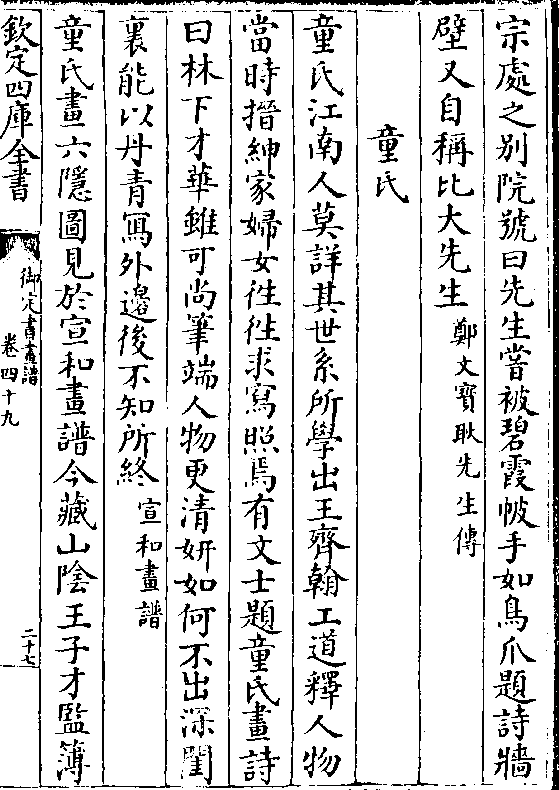 宗處之别院號曰先生嘗被碧霞帔手如鳥爪題詩牆
壁又自稱比大先生鄭文寶耿先生傳
童氏
童氏江南人莫詳其世系所學出王齊翰工道釋人物
當時搢紳家婦女徃徃求寫照焉有文士題童氏畫詩
曰林下才華雖可尚筆端人物更清妍如何不出深閨
裏能以丹青寫外邊後不知所終宣和畫譜
童氏畫六隱圖見於宣和畫譜今藏山陰王子才監簿
欽定四庫全書
御定書畫譜
卷四十九
二十七